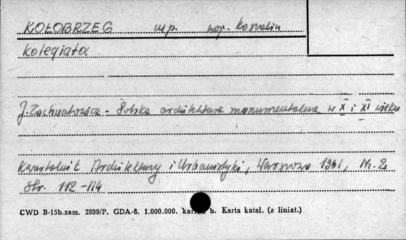 KOŁOBRZEG m.p. woj. koszalin
kolegiata
J. Zachwatowicz - Polska architektura monumentalna w X i XI wieku
Kwartalnik Architektury i Urbanistyki, Warszawa 1961, Nr. 2,
Str. 112-114
CWD B-15b.zam. 2899/P. GDA-8. 1.000.000. kar b. Karta katal. (z liniat.)